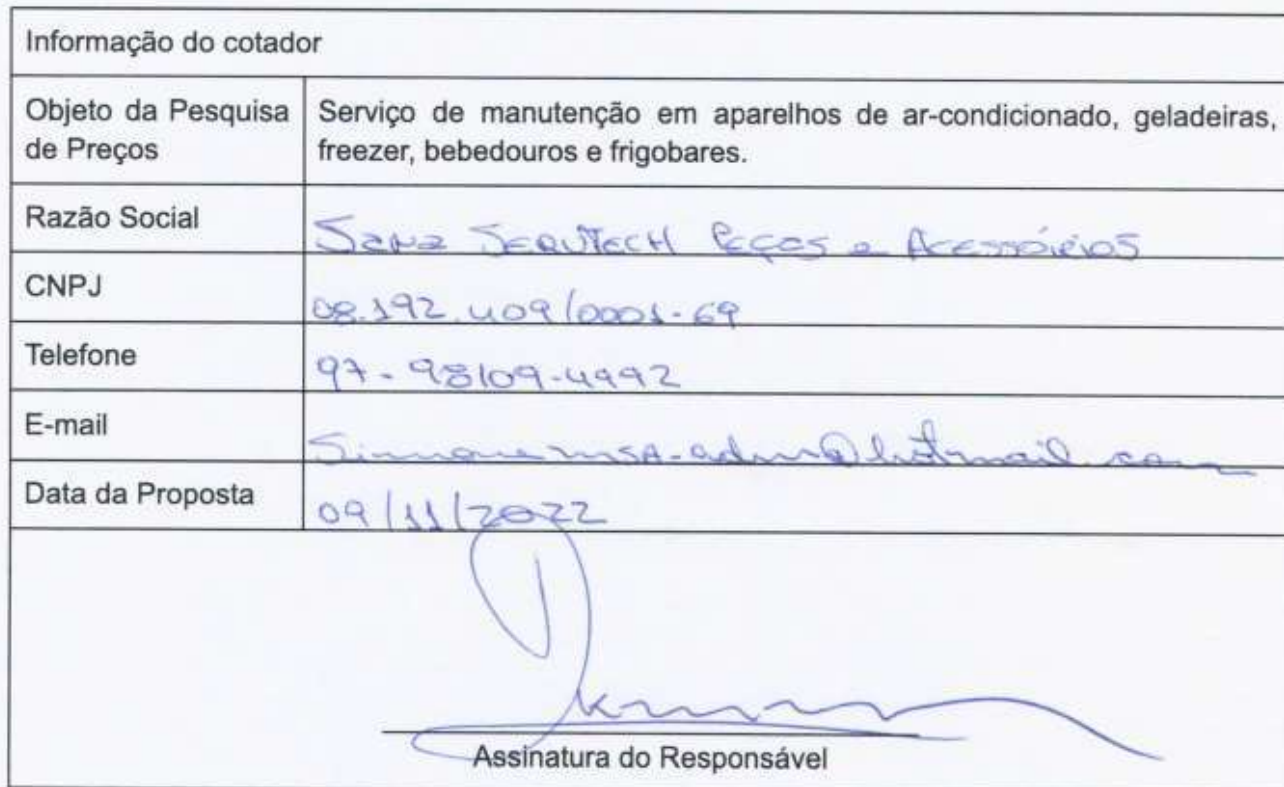 Informação do cotador
Objeto da Pesquisa de Preços
Serviço de manutenção em aparelhos de ar-condicionado, geladeiras,
freezer, bebedouros e frigobares.
Razão Social
SERVTECH PEÇAS e ACESSÓRIOS
CNPJ
08.192.409/0001-69
Telefone
97-98109-4992
E-mail
Data da Proposta
09/11/2022
Assinatura do Responsável